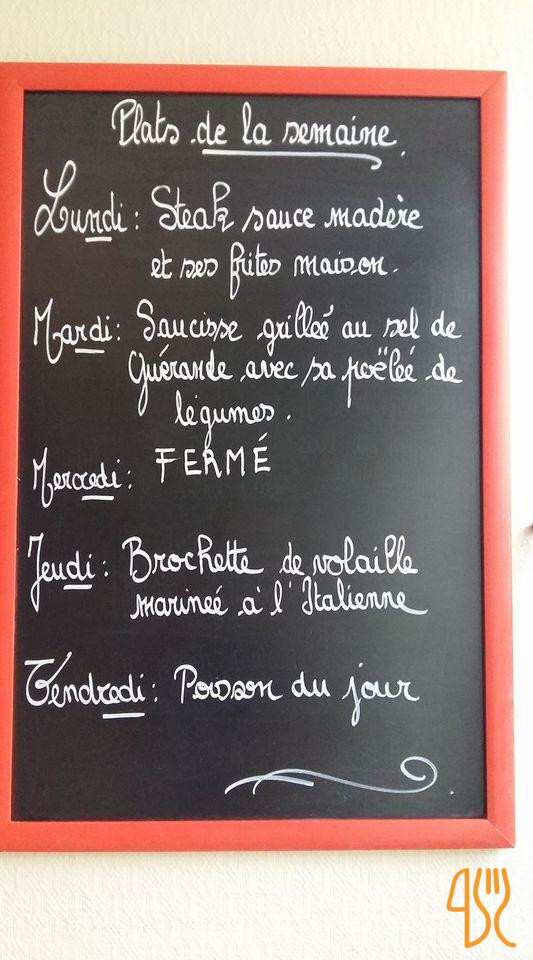 Plats de la semaine.
Lundi : Steak sauce madère
et ses frites maison.
Mardi : Saucisse grilleé au sel de
Guérande avec sa poëleé de
légumes.
Mercredi : FERMÉ
Jeudi : Brochette de volaille
marineé à l'Italienne
Vendredi : Poisson du jour